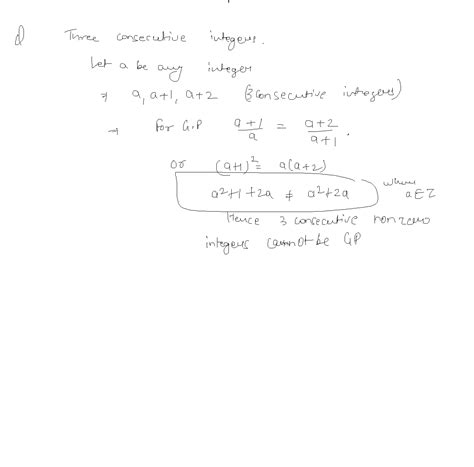 d) Three consecutive integers.
Let a be any integer
⇒ a, a+1, a+2 (3 consecutive integers)
→ For G.P (a+1)/a = (a+2)/(a+1).
or (a+1)² = a(a+2)
a²+1+2a ≠ a²+2a where a∈Z
Hence 3 consecutive nonzero
integers cannot be GP